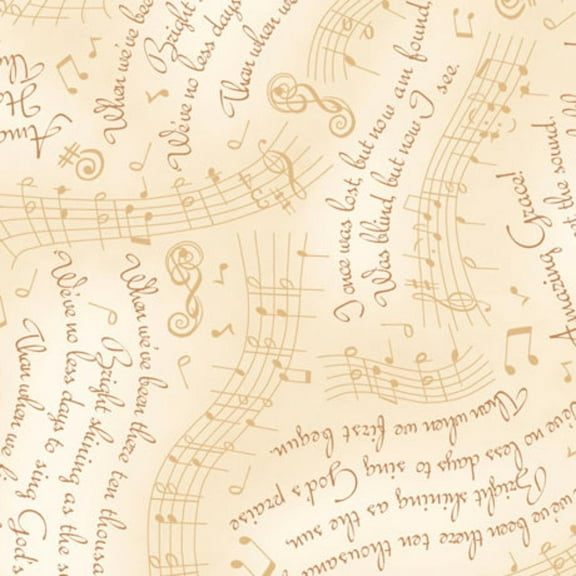 When we've bee
Bright
We've no less days
Than when we
Ama
I once was lost, but now am found,
Was blind but now I see.
Amazing Grace!
at the sound,
When we've been there ten thousa
Bright shining as the s
We've no less days to sing God's
Than when we fi
we've been there ten thousand
Bright shining as the sun,
We've no less days to sing God's praise
Than when we first begun.